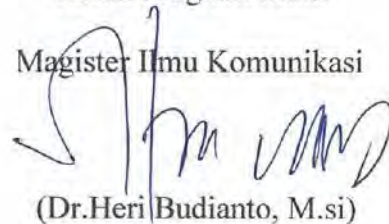 Magister Ilmu Komunikasi
(Dr.Heri Budianto, M.si)